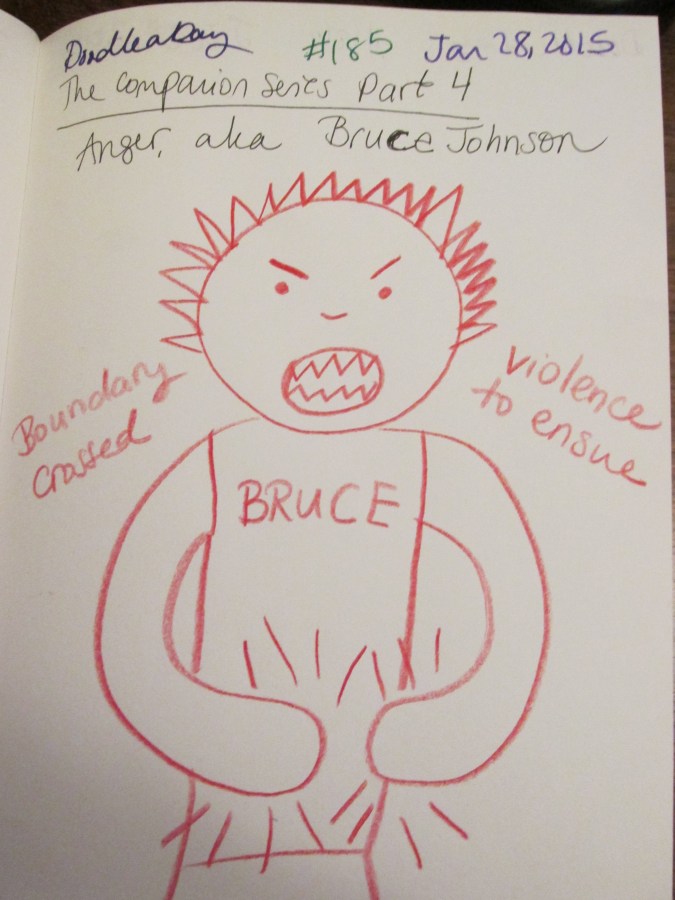 Doodleaday #185 Jan 28, 2015
The Companion Series Part 4
Anger, aka Bruce Johnson
Boundary
crossed
violence
to ensue
BRUCE